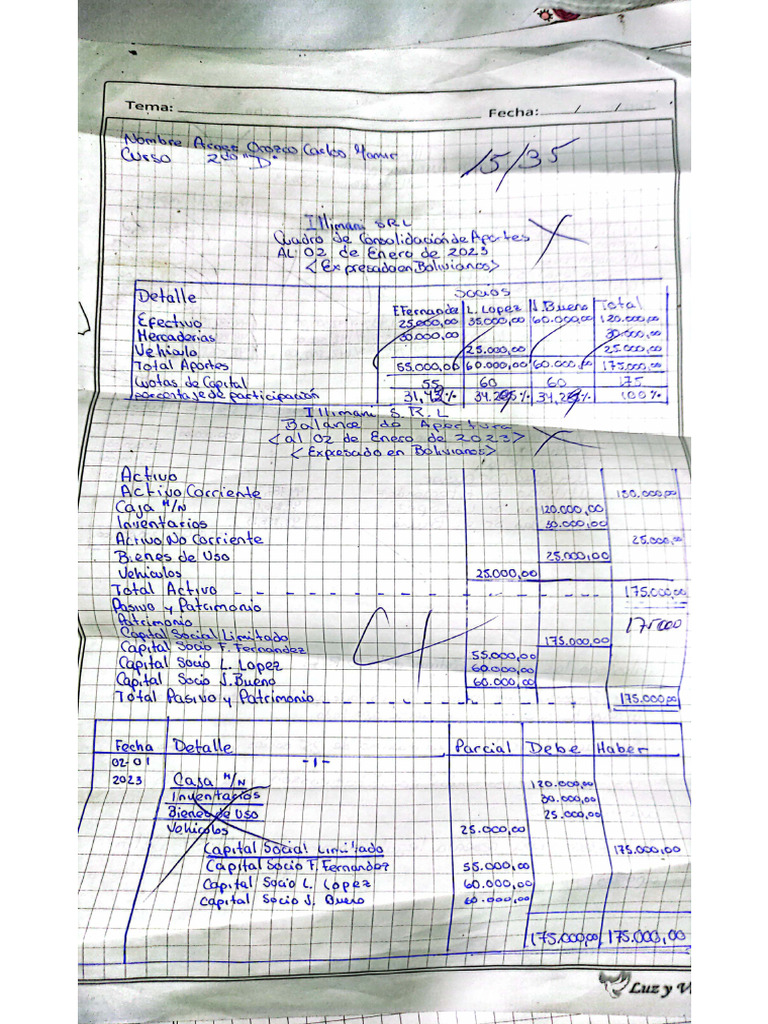 Tema: Fecha: / /
Nombre Orozco Carlos
Curso 2do "D"
15/35
Illimani SRL
Cuadro de Consolidación de Aportes
AL 02 de Enero de 2023
<Expresado en Bolivianos>
Detalle Socios
F.Fernandez L. Lopez J. Bueno Total
Efectivo 25.000,00 35.000,00 60.000,00 120.000,00
Mercaderias 30.000,00 30.000,00
Vehiculo 25.000,00 25.000,00
Total Aportes 55.000,00 60.000,00 60.000,00 175.000,00
Cuotas de Capital 55 60 60 175
porcentaje de participación 31,42% 34.285% 34,285% 100%
Illimani S.R.L
Balance de Apertura
<al 02 de Enero de 2023>
<Expresado en Bolivianos>
Activo
Activo Corriente 150.000,00
Caja M/N 120.000,00
Inventarios 30.000,00
Activo No Corriente 25.000,00
Bienes de Uso 25.000,00
Vehiculos 25.000,00
Total Activo 175.000,00
Pasivo y Patrimonio
Patrimonio 175000
Capital Social Limitado 175.000,00
Capital Socio F. Fernandez 55.000,00
Capital Socio L. Lopez 60.000,00
Capital Socio J. Bueno 60.000,00
Total Pasivo y Patrimonio 175.000,00
Fecha Detalle Parcial Debe Haber
02-01 -1-
2023 Caja M/N 120.000,00
Inventarios 30.000,00
Bienes de Uso 25.000,00
Vehiculos 25.000,00
Capital Social Limitado 175.000,00
Capital Socio F. Fernandez 55.000,00
Capital Socio L. Lopez 60.000,00
Capital Socio J. Bueno 60.000,00
175.000,00 175.000,00
Luz y V